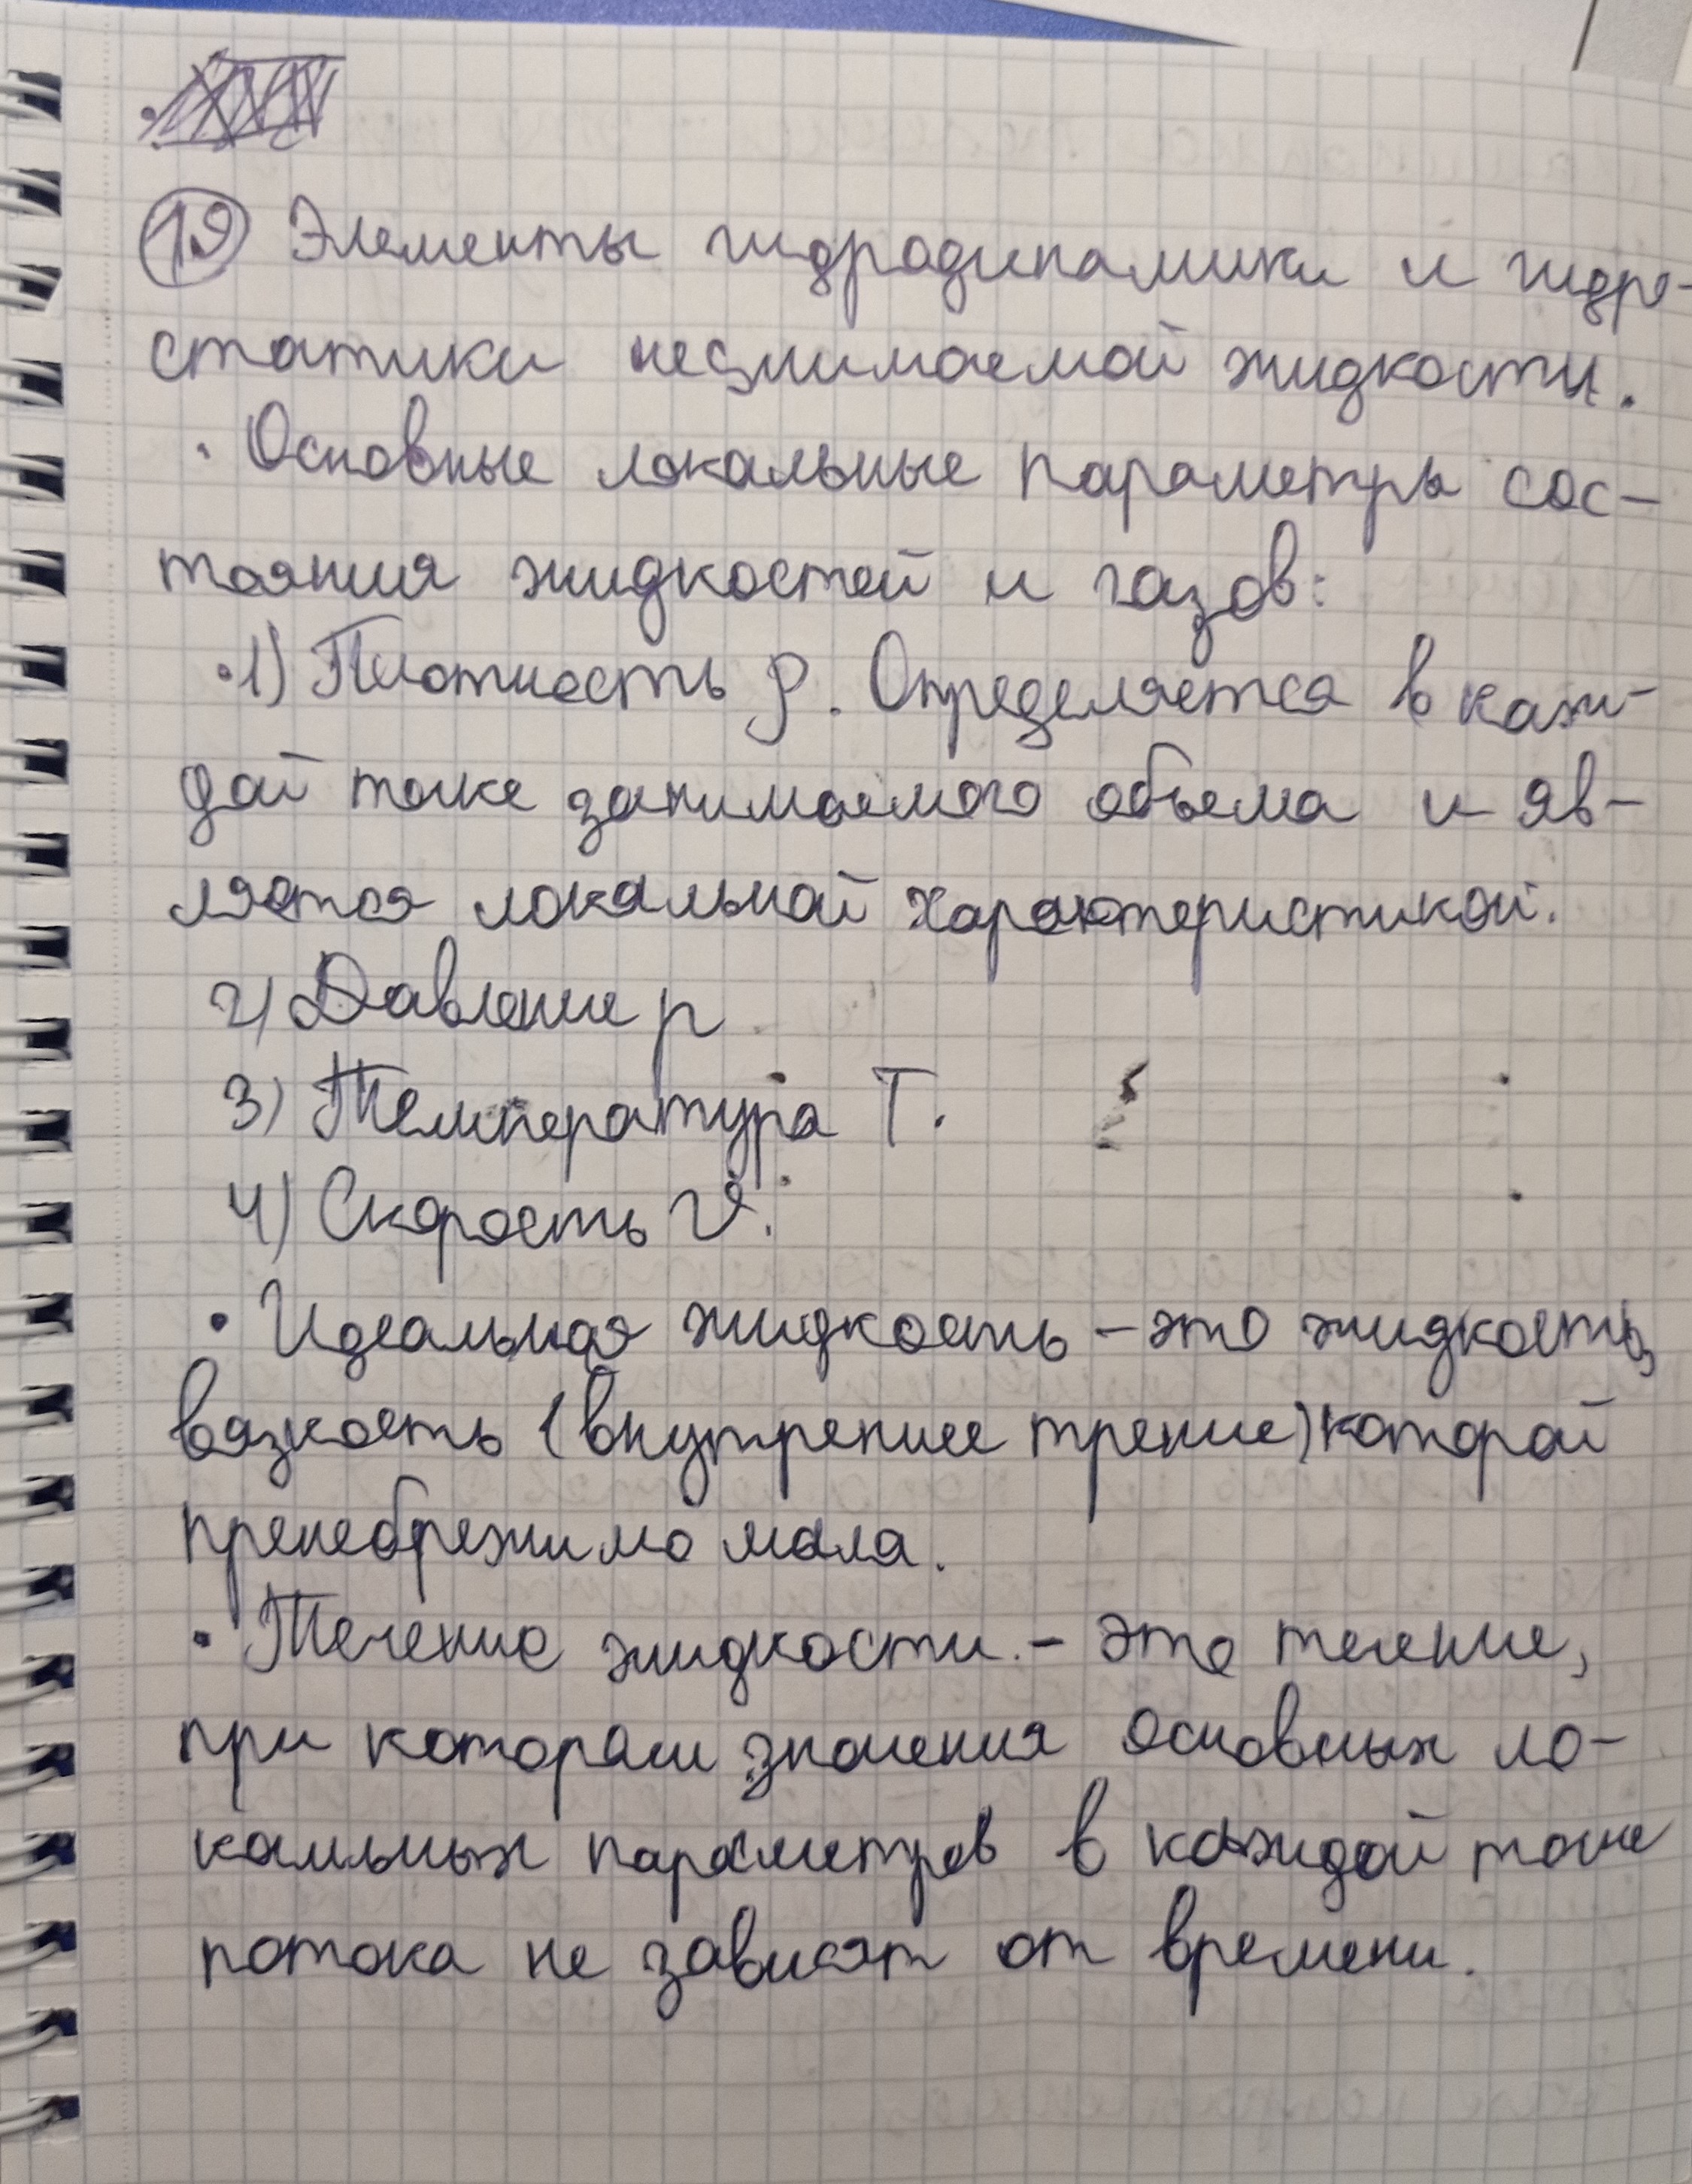 19 Элементы гидродинамики и гидро-
статики несжимаемой жидкости.
· Основные локальные параметры сос-
тояния жидкостей и газов:
·1) Плотность ρ. Определяется в каж-
дой точке занимаемого объема и яв-
ляется локальной характеристикой.
2) Давление p
3) Температура T.
4) Скорость v.
· Идеальная жидкость – это жидкость,
вязкость (внутреннее трение) которой
пренебрежимо мала.
· Течение жидкости. – это течение,
при котором значения основных ло-
кальных параметров в каждой точке
потока не зависят от времени.